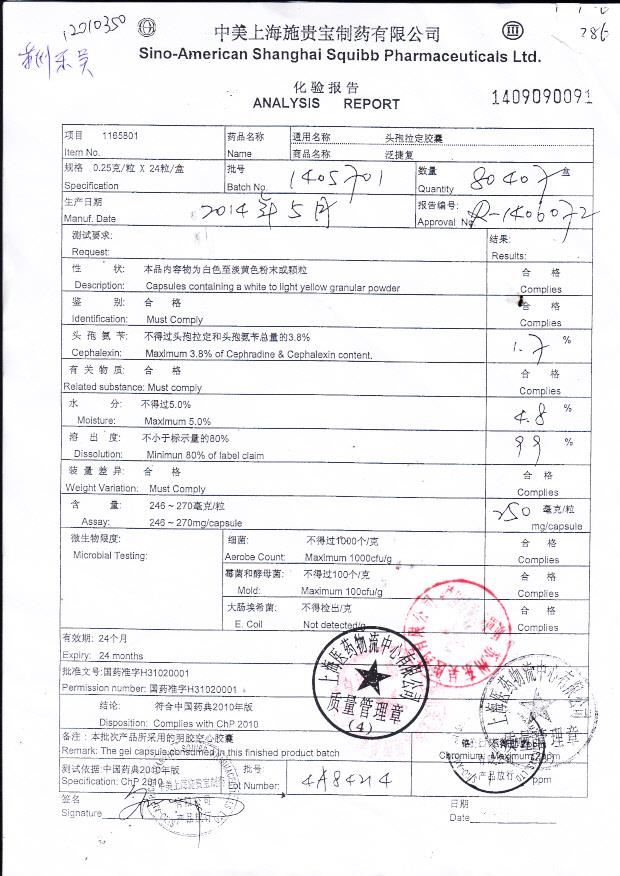 12010350
286
中美上海施贵宝制药有限公司
Sino-American Shanghai Squibb Pharmaceuticals Ltd.
化验报告
ANALYSIS REPORT
1409090091
项目 1165801 药品名称 通用名称 头孢拉定胶囊
Item No. Name 商品名称 泛捷复
规格 0.25克/粒 X 24粒/盒 批号 1405701 数量 80407 盒
Specification Batch No. Quantity
生产日期 2014年5月 报告编号:
Manuf. Date Approval No
测试要求: 结果:
Request: Results:
性 状: 本品内容物为白色至淡黄色粉末或颗粒 合 格
Description: Capsules containing a white to light yellow granular powder Complies
鉴 别: 合 格 合 格
Identification: Must Comply Complies
头孢氨苄: 不得过头孢拉定和头孢氨苄总量的3.8% 1.7 %
Cephalexin: Maximum 3.8% of Cephradine & Cephalexin content.
有关物质: 合 格 合 格
Related substance: Must comply Complies
水 分: 不得过5.0% 4.8 %
Moisture: Maximum 5.0%
溶 出 度: 不小于标示量的80% 99 %
Dissolution: Minimun 80% of label claim
装量差异: 合 格 合 格
Weight Variation: Must Comply Complies
含 量: 246～270毫克/粒 250 毫克/粒
Assay: 246～270mg/capsule mg/capsule
微生物限度: 细菌: 不得过1000个/克 合 格
Microbial Testing: Aerobe Count: Maximum 1000cfu/g Complies
霉菌和酵母菌: 不得过100个/克 合 格
Mold: Maximum 100cfu/g Complies
大肠埃希菌: 不得检出/克 合 格
E. Coli Not detected/g Complies
有效期: 24个月
Expiry: 24 months
批准文号:国药准字H31020001
Permission number: 国药准字H31020001
结论: 符合中国药典2010年版
Disposition: Complies with ChP 2010
备注：本批次产品所采用的明胶空心胶囊 铬: 不得过2ppm
Remark: The gel capsule consumed in this finished product batch Chromium: Maximum 2ppm
测试依据:中国药典2010年版 批号
Specification: ChP 2010 Lot Number: ppm
签名 日期
Signature Date
上海医药物流中心有限公司
质量管理章
(4)
上海医药物流中心有限公司
质量管理章
中美上海施贵宝制药
有限公司
产品放行
产品放行